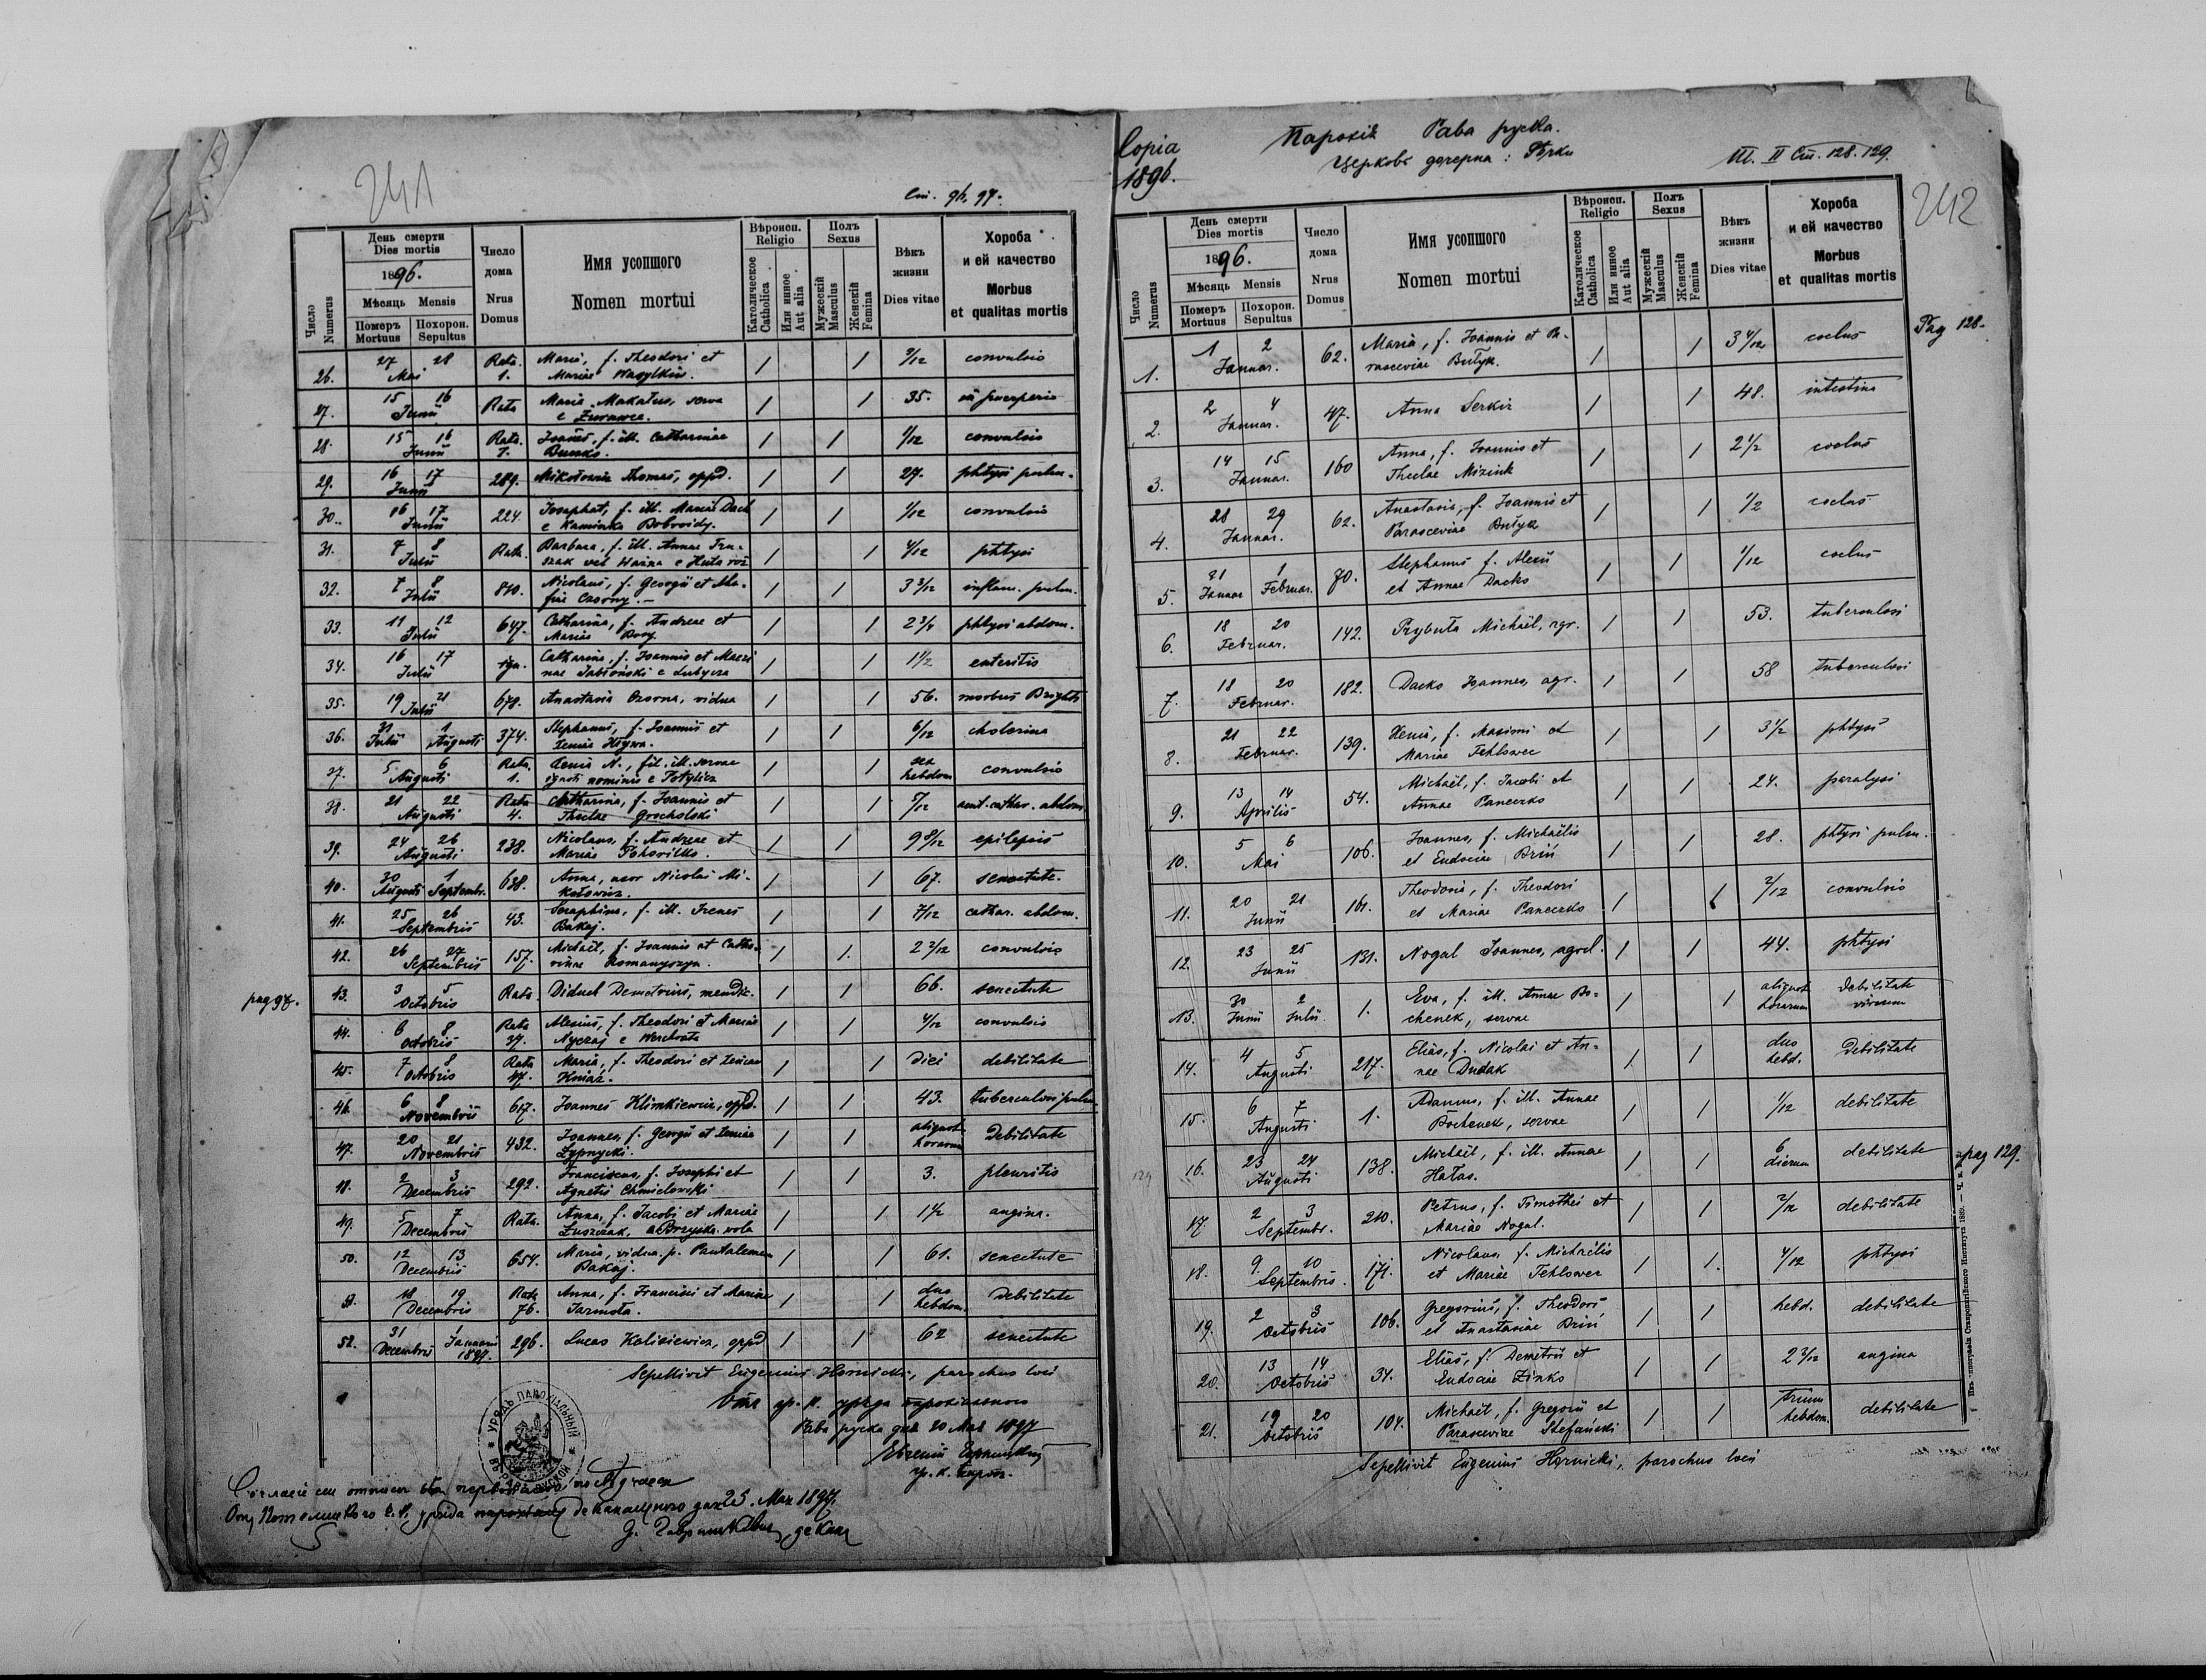 241
Ст. 96, 97.
Число Numerus
День смерти Dies mortis
1896.
Мѣсяць Mensis
Померъ Mortuus
Похорон. Sepultus
Число дома Nrus Domus
Имя усопшого Nomen mortui
Вѣроисп. Religio
Католическое Catholica
Или инное Aut alia
Полъ Sexus
Мужескій Masculus
Женскій Femina
Вѣкъ жизни Dies vitae
Хороба и ей качество Morbus et qualitas mortis
26. 27 28 Mai Rata 1. Maria, f. Theodori et Mariae Wasylkiw. / / 9/12 convulsio
27. 15 16 Junii Rata Maria Makatus, serva e Żurawce. / / 35. in puerperio
28. 15 16 Junii Rata 1. Joannes, f. ill. Catharinae / / 1/12 convulsio
29. 16 17 Junii 289. Mikołowicz Thomas, oppid. / / 27. phtysi pulm.
30. 16 17 Junii 224. Josaphat, f. ill. Mariae Dack e Kamionka / / 1/12 convulsio
31. 7 8 Julii Rata Barbara, f. ill. Annae / / 4/12 phtysi
32. 7 8 Julii 810. Nicolaus, f. Georgii et Czorny. / / 3 3/12 inflam. pulm.
33. 11 12 Julii 647. Catharina, f. Andreae et Mariae / / 2 3/4 phtysi abdom.
34. 16 17 Julii ign. Catharina, f. Joannis et Jabłoński e Lubycza / / 1 1/2 enteritis
35. 19 21 Julii 678. Anastasia Czorna, vidua / / 56. morbus Brighti
36. 31 1 Julii Augusti 374. Stephanus, f. Joannis et Xeniae / / 6/12 cholerina
37. 5 6 Augusti Rata 1. Xenia N., fil. ill. servae ignoti nominis e Potylicz / / sex hebdom convulsio
38. 21 22 Augusti Rata 4. Catharina, f. Joannis et Theclae Grocholski / / 5/12 cathar. abdom.
39. 24 26 Augusti 238. Nicolaus, f. Andreae et Mariae / / 9 8/12 epilepsis
40. 30 1 Augusti Septembr. 638. Anna, uxor Nicolai Mikołowicz. / / 67. senectute.
41. 25 26 Septembris 43. Seraphina, f. ill. Irenes Bakaj. / / 7/12 cathar. abdom.
42. 26 27 Septembris 157. Michael, f. Joannis et Catharinae / / 2 2/12 convulsio
pag 97. 43. 3 5 Octobris Rata. Diduch Demetrius, mendic. / / 66. senectute
44. 6 8 Octobris Rata 37. Alexius, f. Theodori et Mariae Nyczaj e Werchrata / / 4/12 convulsio
45. 7 8 Octobris Rata 47. Maria, f. Theodori et Xeniae / / diei debilitate
46. 6 8 Novembris 617. Joannes Klimkiewicz, oppid. / / 43. tuberculosi pulm.
47. 20 21 Novembris 432. Joannes, f. Georgii et Xeniae Żypnycki. / / aliquot horarum Debilitate
48. 2 3 Decembris 292. Franciscus, f. Josephi et Agnetis Chmielowski / / 3. pleuritis
49. 5 7 Decembris Rata. Anna, f. Jacobi et Mariae Łuszczak, / / 1 1/2 angina.
50. 12 13 Decembris 654. Maria, vidua p. Pantalemon Bakaj. / / 61. senectute
51. 18 19 Decembris Rata 76. Anna, f. Francisci et Mariae Jarmoła. / / duo hebdom. Debilitate
52. 31 1 Decembris Januarii 1897. 296. Lucas Kolisiewicz, oppid / / 62 senectute
Sepellivit Eugenius Hornicki, parochus loci
Отъ гр. к. уряда парохіального
Рава руска дня 20 Мая 1897
Евгеній Горницкій
гр. к. парох.
УРЯДЪ ПАРОХІАЛЬНЫЙ
уряда деканального дня 25. Мая 1897.
декан
Copia 1896.
Парохія Рава руска.
Церковь дочерна: Рѣчки
Т. II Ст. 128. 129.
242
Число Numerus
День смерти Dies mortis
1896.
Мѣсяць Mensis
Померъ Mortuus
Похорон. Sepultus
Число дома Nrus Domus
Имя усопшого Nomen mortui
Вѣроисп. Religio
Католическое Catholica
Или инное Aut alia
Полъ Sexus
Мужескій Masculus
Женскій Femina
Вѣкъ жизни Dies vitae
Хороба и ей качество Morbus et qualitas mortis
Pag 128.
1. 1 2 Januar. 62. Maria, f. Joannis et Parasceviae Bułyk. / / 3 4/12 coclus
2. 2 4 Januar. 47. Anna Serkiz / / 48. intestina
3. 14 15 Januar. 160 Anna, f. Joannis et Theclae Mizink / / 2 1/2 coclus
4. 28 29 Januar. 62. Anastasia, f. Joannis et Parasceviae Bułyk / / 1/2 coclus
5. 31 1 Januar Februar. 70. Stephanus f. Alexii et Annae Dacko / / 1/12 coclus
6. 18 20 Februar. 142. Prybuła Michaël, agr. / / 53. tuberculosi
7. 18 20 Februar. 182. Dacko Joannes, agr. / / 58 tuberculosi
8. 21 22 Februar. 139. Xenia, f. Maximi et Mariae Tehlowec / / 3 1/2 phtysi
9. 13 14 Aprilis 54. Michaël, f. Jacobi et Annae Paneczko / / 24. paralysi
10. 5 6 Mai 106. Joannes, f. Michaëlis et Eudociae Briń / / 28. phtysi pulm.
11. 20 21 Junii 161. Theodosia, f. Theodori et Mariae Paneczko / / 2/12 convulsio
12. 23 25 Junii 131. Nogal Joannes, agricol. / / 44. phtysi
13. 30 2 Junii Julii 1. Eva, f. ill. Annae Bochenek, servae / / aliquot horarum debilitate virium
14. 4 5 Augusti 217. Elias, f. Nicolai et Annae Dudak / / duo hebd. Debilitate
15. 6 7 Augusti 1. Adamus, f. ill. Annae Bochenek, servae / / 1/12 debilitate
129 16. 23 24 Augusti 138. Michaël, f. ill. Annae Hałas. / / 6 dierum debilitate pag 129.
17. 2 3 Septembr. 210. Petrus, f. Timothei et Mariae Nogal. / / 2/12 debilitate
18. 9 10 Septembris. 171. Nicolaus, f. Michaëlis et Mariae Tehlower / / 4/12 phtysi
19. 2 3 Octobris 106. Gregorius, f. Theodori et Anastasiae Briń / / hebd. debilitate
20. 13 14 Octobris 34. Elias, f. Demetrii et Eudociae Zinko / / 2 3/12 angina
21. 19 20 Octobris 104. Michaël, f. Gregorii et Parasceviae Stefański / / trium hebdom. debilitate
Sepellivit Eugenius Hornicki, parochus loci
Изъ типографіи Ставропигійского Института 1889.